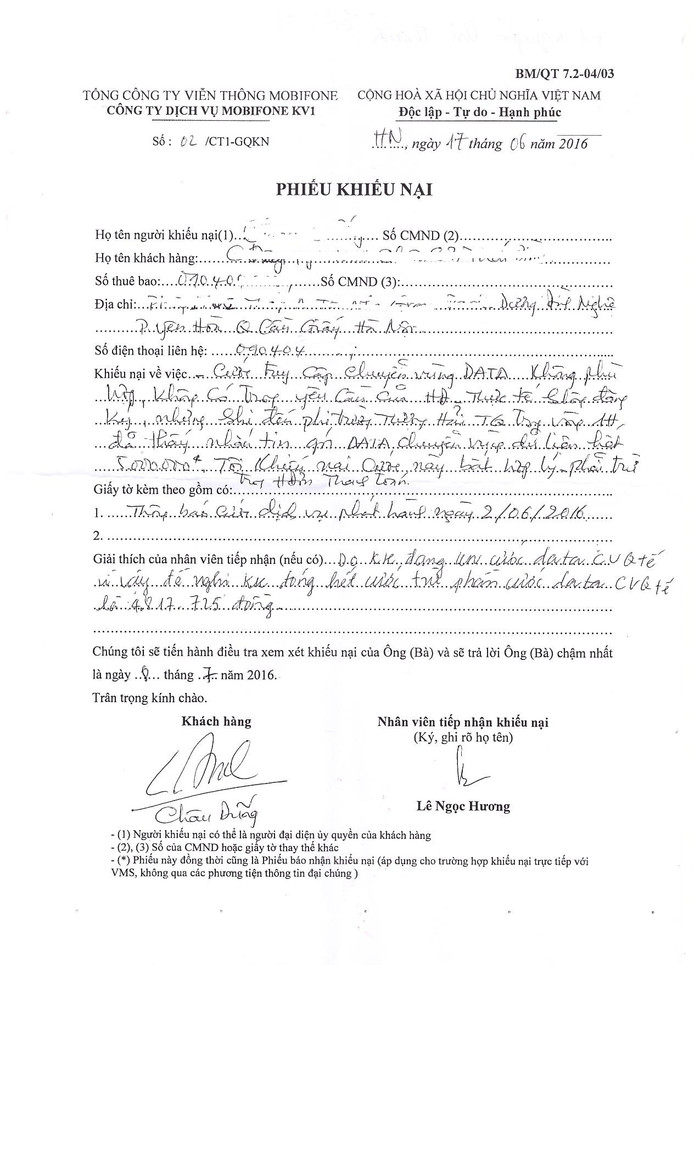 BM/QT 7.2-04/03
TỔNG CÔNG TY VIỄN THÔNG MOBIFONE
CÔNG TY DỊCH VỤ MOBIFONE KV1
Số : 02 /CT1-GQKN
CỘNG HOÀ XÃ HỘI CHỦ NGHĨA VIỆT NAM
Độc lập - Tự do - Hạnh phúc
HN, ngày 17 tháng 06 năm 2016
PHIẾU KHIẾU NẠI
Họ tên người khiếu nại(1) Số CMND (2)
Họ tên khách hàng:
Số thuê bao: 090.4.0 Số CMND (3):
Địa chỉ: Dương Đình Nghệ
P. Yên Hòa Q Cầu Giấy Hà Nội
Số điện thoại liên hệ: 090404
Khiếu nại về việc Cước truy cập chuyển vùng DATA Không phù
hợp, Không có trong yêu cầu của HĐ. Thực tế không đăng
ký, nhưng khi đến Thượng Hải TQ vòng 1H,
đã thấy nhắn tin gói DATA chuyển vùng dữ liệu hết
5.000.000đ Tôi Khiếu nại Cước này bất hợp lý phải trả
Thanh toán
Giấy tờ kèm theo gồm có:
1. Thông báo cước dịch vụ phát hành ngày 2/06/2016
2.
Giải thích của nhân viên tiếp nhận (nếu có) Do KH đang KN cước data CVQ tế
vì vậy đề nghị KH đóng hết cước trừ phần cước data CVQ tế
là 4.817.725 đồng
Chúng tôi sẽ tiến hành điều tra xem xét khiếu nại của Ông (Bà) và sẽ trả lời Ông (Bà) chậm nhất
là ngày tháng 7 năm 2016.
Trân trọng kính chào.
Khách hàng
Châu Dũng
Nhân viên tiếp nhận khiếu nại
(Ký, ghi rõ họ tên)
Lê Ngọc Hương
- (1) Người khiếu nại có thể là người đại diện ủy quyền của khách hàng
- (2), (3) Số của CMND hoặc giấy tờ thay thế khác
- (*) Phiếu này đồng thời cũng là Phiếu báo nhận khiếu nại (áp dụng cho trường hợp khiếu nại trực tiếp với
VMS, không qua các phương tiện thông tin đại chúng )